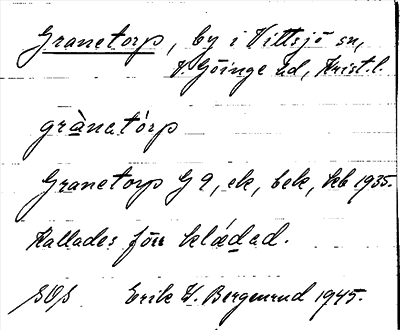 Granetorp, by i Vittsjö sn,
V. Göinge hd, Krist. l.
grànetórp
Granetorp G 9, ek, bek, kb 1935.
Kallades förr
SOS Erik K. Bergenrud 1945.